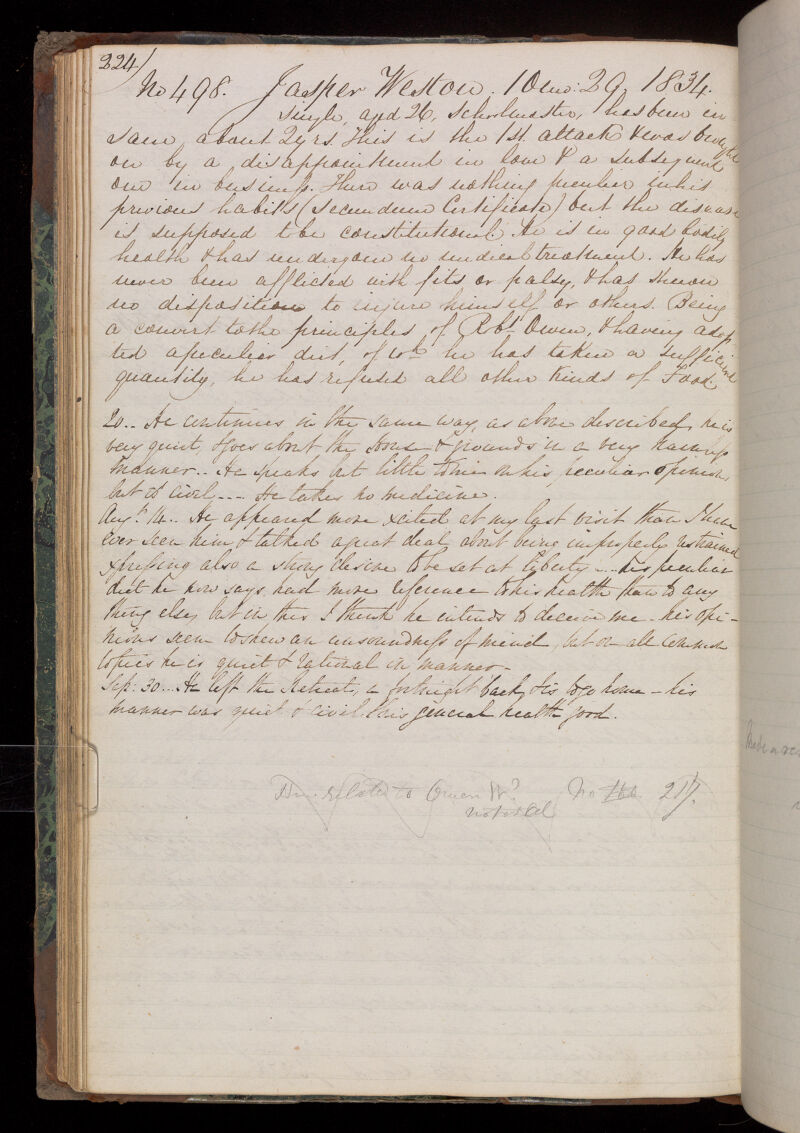 224)
No 498. Jasper Weston. 10 mo: 29. 1834.
single, aged 26, Schoolmaster, has been in-
sane about 2 yrs. This is the 1st. attack & was brought
on by a disappointment in love & a subsequent
one in business. There was nothing peculiar in his
previous habits (secundum Certificate) but the disease
is supposed to be constitutional. He is in good bodily
health & has undergone no medical treatment. He has
never been afflicted with fits or palsy, & has shewn
no disposition to injure himself or others. Being
a convert to the principles of Robt. Owen, & having adop-
ted a peculiar diet, of wh. he has taken a sufficient
quantity, he has refused all other kinds of Food.
20.. He continues in the same way, as above described, he is
very quiet, & goes about the House & grounds in a very harmless
manner.. He speaks but little to me on his peculiar opinions,
but is civil --- He takes no medicine.
Augt. 14.. He appeared more excited at my last visit than I have
ever seen him & talked a great deal about being improperly restrained
expressing also a strong desire to be set at liberty -... his peculiar
diet he now says, had more reference to his health than to any
thing else, but in this I think he intends to deceive me - his opi-
nions seem to shew an unsoundness of mind, but on all common
topics he is quiet & rational in manner -
Sep: 30... He left the Retreat, a fortnight back, to go home - his
manner was quiet & civil & his general health good.
related to Owen W?
No 217.